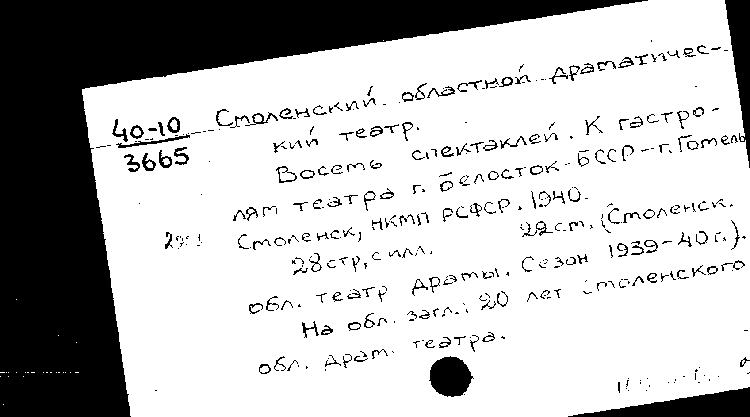 40-10
3665
Смоленский областной драматичес-
кий театр.
Восемь спектаклей. К гастро-
лям театра г. Белосток-БССР-г. Гомель
Смоленск, НКМП РСФСР. 1940.
28 стр, с илл. 22 см. (Смоленск.
обл. театр драмы. Сезон 1939-40 г.).
На обл. загл.: 20 лет Смоленского
обл. драм. театра.